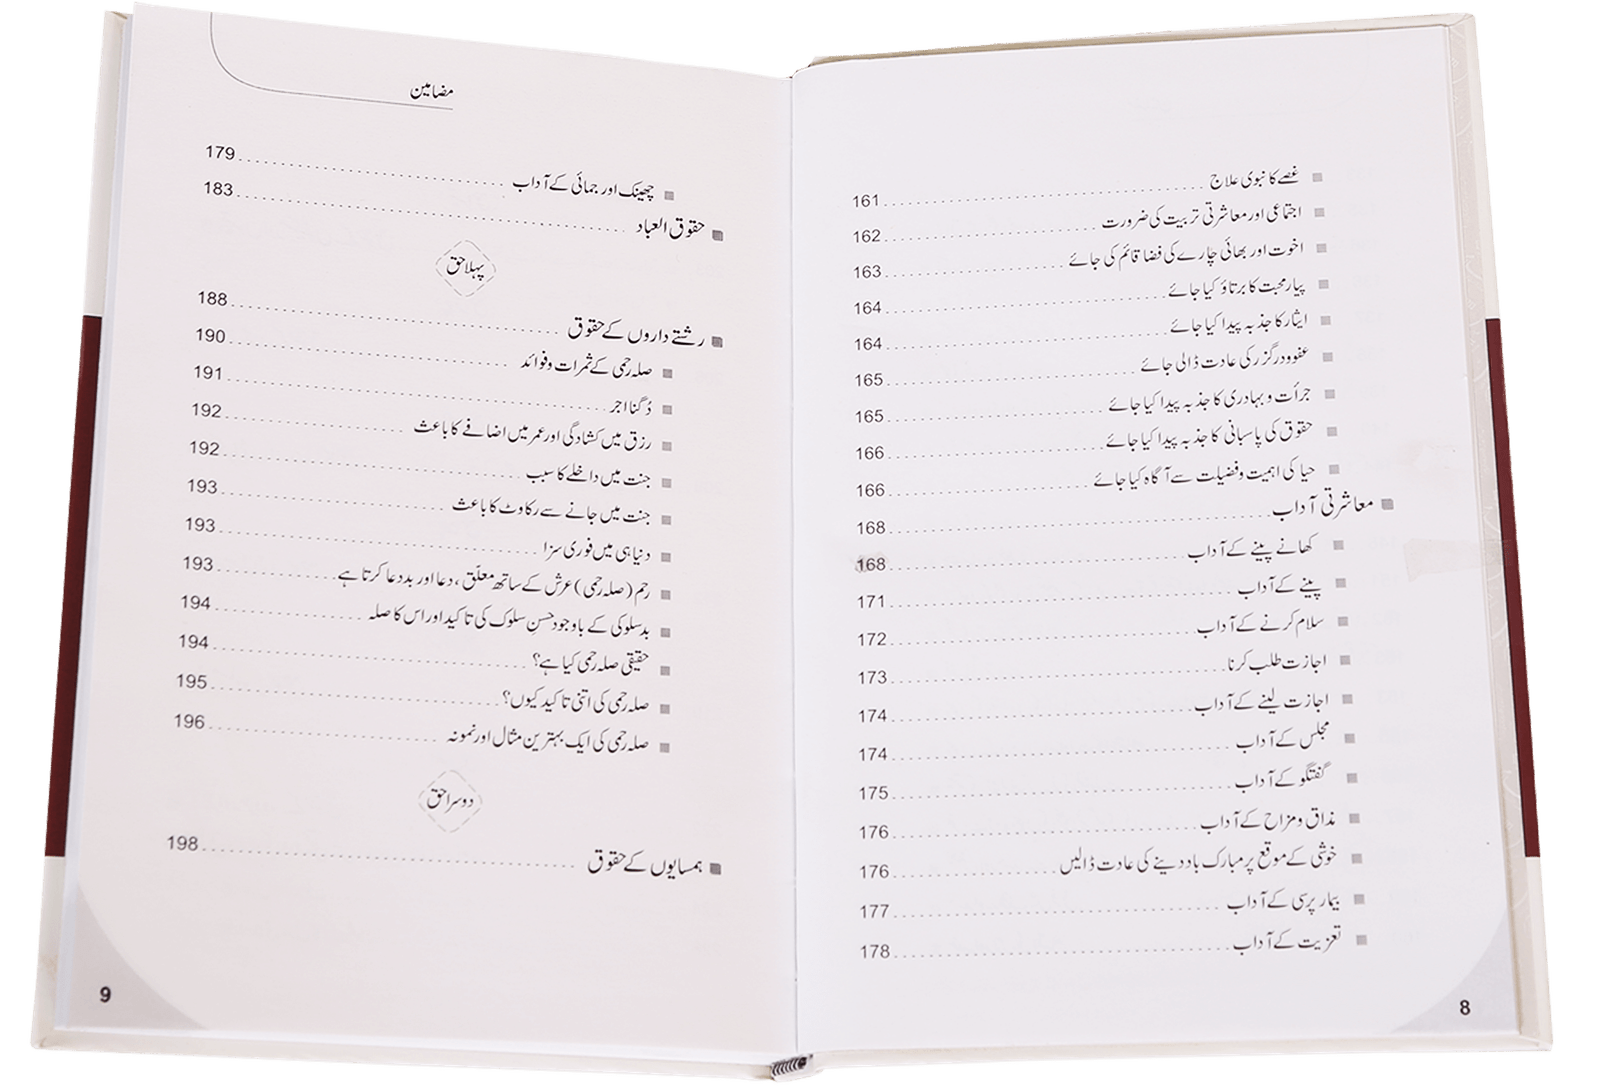 غصے کا نبوی علاج 161
اجتماعی اور معاشرتی تربیت کی ضرورت 162
اخوت اور بھائی چارے کی فضا قائم کی جائے 163
پیار محبت کا برتاؤ کیا جائے 164
ایثار کا جذبہ پیدا کیا جائے 164
عفو و درگزر کی عادت ڈالی جائے 165
جرأت و بہادری کا جذبہ پیدا کیا جائے 165
حقوق کی پاسبانی کا جذبہ پیدا کیا جائے 166
حیا کی اہمیت و فضیلت سے آگاہ کیا جائے 166
معاشرتی آداب 168
کھانے پینے کے آداب 168
پینے کے آداب 171
سلام کرنے کے آداب 172
اجازت طلب کرنا 173
اجازت لینے کے آداب 174
مجلس کے آداب 174
گفتگو کے آداب 175
مذاق و مزاح کے آداب 176
خوشی کے موقع پر مبارک باد دینے کی عادت ڈالیں 176
بیمار پرسی کے آداب 177
تعزیت کے آداب 178
8
مضامین
چھینک اور جمائی کے آداب 179
حقوق العباد 183
پہلا حق
رشتے داروں کے حقوق 188
صلہ رحمی کے ثمرات و فوائد 190
دُگنا اجر 191
رزق میں کشادگی اور عمر میں اضافے کا باعث 192
جنت میں داخلے کا سبب 192
جنت میں جانے سے رکاوٹ کا باعث 193
دنیا ہی میں فوری سزا 193
رحم (صلہ رحمی) عرش کے ساتھ معلّق، دعا اور بددعا کرتا ہے 193
بدسلوکی کے باوجود حسنِ سلوک کی تاکید اور اس کا صلہ 194
حقیقی صلہ رحمی کیا ہے؟ 194
صلہ رحمی کی اتنی تاکید کیوں؟ 195
صلہ رحمی کی ایک بہترین مثال اور نمونہ 196
دوسرا حق
ہمسایوں کے حقوق 198
9